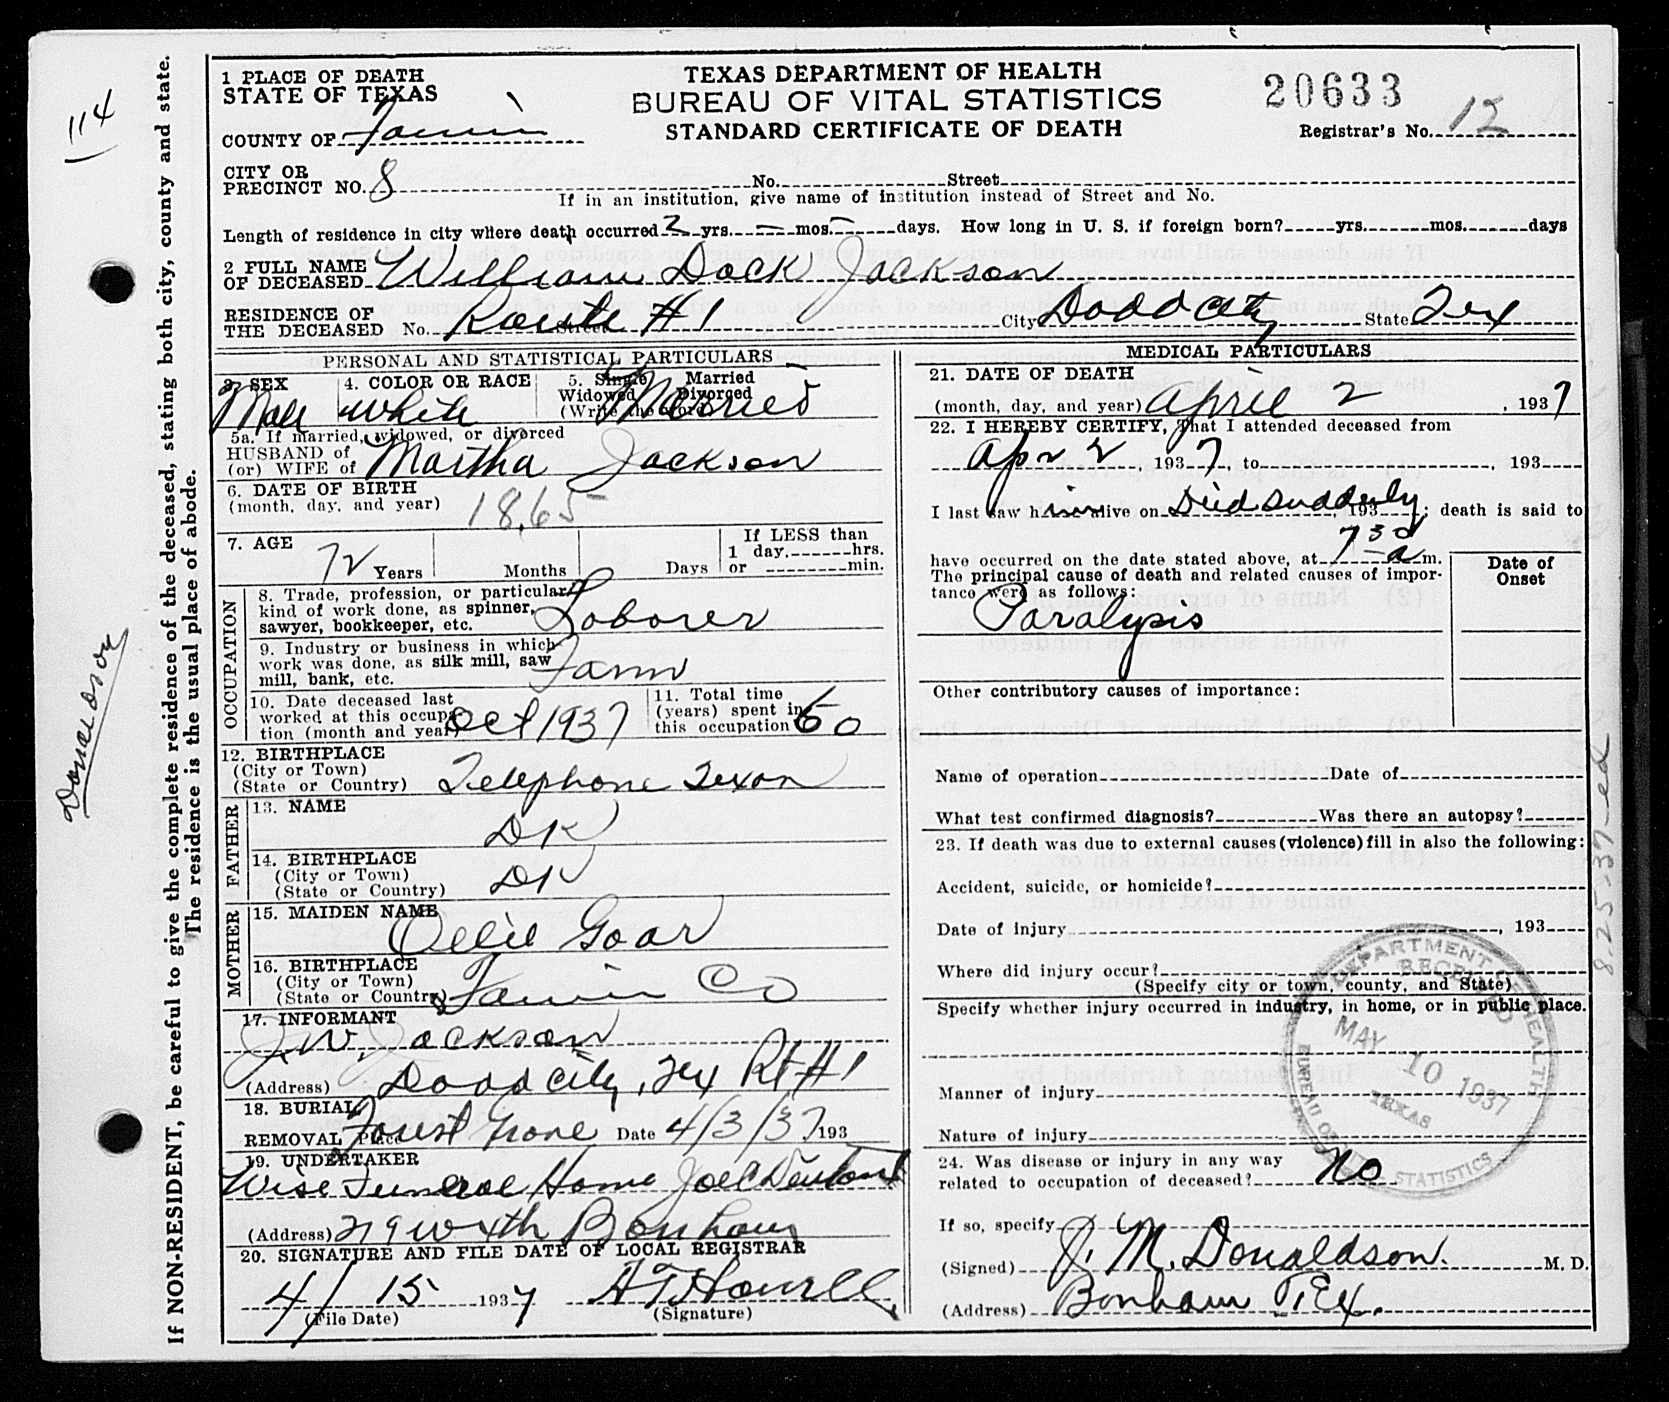 1 PLACE OF DEATH
STATE OF TEXAS
COUNTY OF Fannin
TEXAS DEPARTMENT OF HEALTH
BUREAU OF VITAL STATISTICS
STANDARD CERTIFICATE OF DEATH
20633
Registrar's No. 12
CITY OR
PRECINCT NO. 8 No. Street
If in an institution, give name of institution instead of Street and No.
Length of residence in city where death occurred 2 yrs. – mos. – days. How long in U. S. if foreign born? yrs. mos. days
2 FULL NAME
OF DECEASED William Dock Jackson
RESIDENCE OF
THE DECEASED No. Route #1 Street City Dodd City State Tex
PERSONAL AND STATISTICAL PARTICULARS
3. SEX Male
4. COLOR OR RACE white
5. Single Married
Widowed Divorced
(Write the word) Married
5a. If married, widowed, or divorced
HUSBAND of
(or) WIFE of Martha Jackson
6. DATE OF BIRTH
(month, day, and year) 1865
7. AGE 72 Years Months Days
If LESS than
1 day, hrs.
or min.
OCCUPATION
8. Trade, profession, or particular
kind of work done, as spinner,
sawyer, bookkeeper, etc. Laborer
9. Industry or business in which
work was done, as silk mill, saw
mill, bank, etc. Farm
10. Date deceased last
worked at this occupa-
tion (month and year) Oct 1937
11. Total time
(years) spent in
this occupation 60
12. BIRTHPLACE
(City or Town)
(State or Country) Telephone Texas
FATHER
13. NAME DK
14. BIRTHPLACE
(City or Town)
(State or Country) DK
MOTHER
15. MAIDEN NAME Ollie Goar
16. BIRTHPLACE
(City or Town)
(State or Country) Fannin Co
17. INFORMANT
J. W. Jackson
(Address) Dodd City, Tex Rt #1
18. BURIAL
REMOVAL Place Forest Grove Date 4/3/37 193
19. UNDERTAKER
Wise Funeral Home Joe C Denton
(Address) 219 W 6th Bonham
20. SIGNATURE AND FILE DATE OF LOCAL REGISTRAR
4/15 1937
(File Date) (Signature)
MEDICAL PARTICULARS
21. DATE OF DEATH
(month, day, and year) April 2, 1937
22. I HEREBY CERTIFY, That I attended deceased from
Apr 2, 1937, to , 193
I last saw him alive on Died suddenly, 193 ; death is said to
have occurred on the date stated above, at 7 30 a m.
The principal cause of death and related causes of impor-
tance were as follows:
Date of
Onset
Paralysis
Other contributory causes of importance:
Name of operation Date of
What test confirmed diagnosis? Was there an autopsy?
23. If death was due to external causes (violence) fill in also the following:
Accident, suicide, or homicide?
Date of injury , 193
Where did injury occur?
(Specify city or town, county, and State)
Specify whether injury occurred in industry, in home, or in public place.
Manner of injury
Nature of injury
24. Was disease or injury in any way
related to occupation of deceased? No
If so, specify
(Signed) J. M. Donaldson. M. D.
(Address) Bonham Tex.
DEPARTMENT OF HEALTH
RECEIVED
MAY 10 1937
TEXAS
BUREAU OF VITAL STATISTICS
If NON-RESIDENT, be careful to give the complete residence of the deceased, stating both city, county and state.
The residence is the usual place of abode.
114
Donaldson
8-25-37-ed